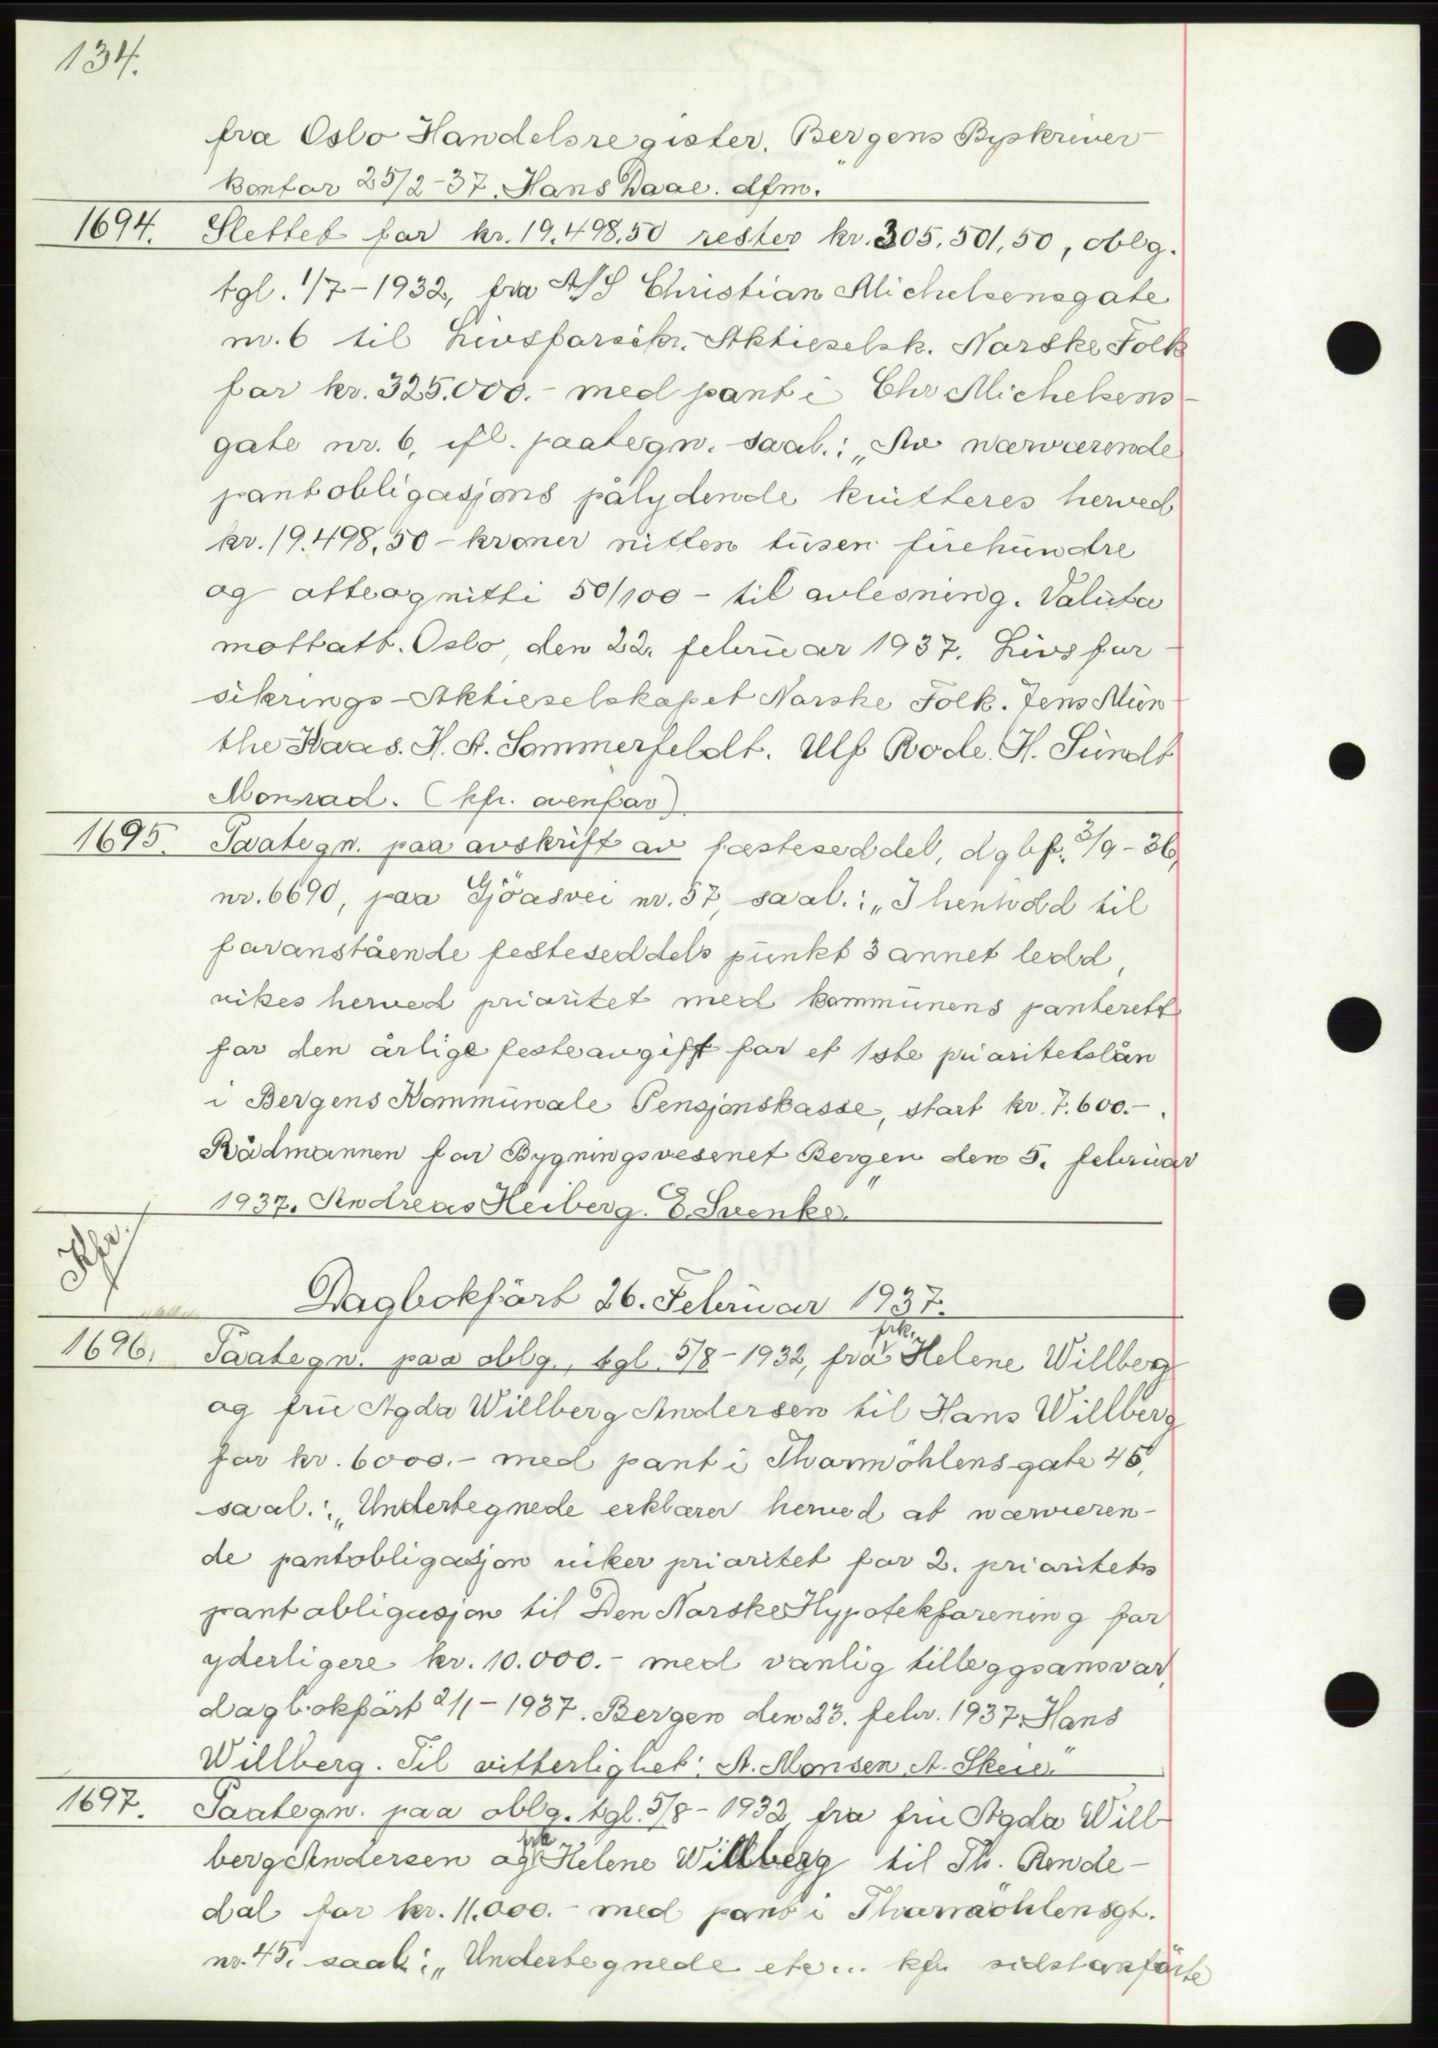 134.
fra Oslo Handelsregister. Bergens Byskriver-
kontor 25/2-37. Hans Daae. dfm."
1694. Slettet for kr. 19.498,50 rester kr. 305.501,50, oblg.
tgl. 1/7-1932, fra A/S Christian Michelsensgate
nr. 6 til Livsforsikr.-Aktieselsk. Norske Folk
for kr. 325.000.- med pant i Chr Michelsens-
gate nr. 6, ifl. paategn. saal.: „Av nærværende
pantobligasjons pålydende kvitteres herved
kr. 19.498,50 - kroner nitten tusen firehundre
og atteognitti 50/100 - til avlesning. Valuta
mottatt. Oslo, den 22. februar 1937. Livsfor-
sikrings-Aktieselskapet Norske Folk. Jens Mün-
the Kaas. H. A. Sommerfeldt. Ulf Rode. H. Sundt
Monrad. (kfr. ovenfor)
1695. Paategn. paa avskrift av festeseddel, dgbf. 3/9-36,
nr. 6690, paa Gjöasvei nr. 57, saal.: „I henhold til
foranstående festeseddels punkt 3 annet ledd,
vikes herved prioritet med kommunens panterett
for den årlige festeavgift for et 1ste prioritetslån
i Bergens Kommunale Pensjonskasse, stort kr. 7.600.-.
Rådmannen for Bygningsvesenet Bergen den 5. februar
1937. Andreas Heiberg. E. Svenke."
Kfr.
Dagbokfört 26. Februar 1937.
1696. Paategn. paa oblg., tgl. 5/8-1932, fra frk. Helene Willberg
og fru Agda Willberg Andersen til Hans Willberg
for kr. 6000.- med pant i Thormöhlensgate 45,
saal.: „Undertegnede erklærer herved at nærværen-
de pantobligasjon viker prioritet for 2. prioritets
pantobligasjon til Den Norske Hypotekforening for
yderligere kr. 10.000.- med vanlig tilleggsansvar,
dagbokfört 2/1-1937. Bergen den 23. febr. 1937. Hans
Willberg. Til vitterlighet: A. Monsen A. Skeie."
1697. Paategn. paa oblg. tgl. 5/8-1932 fra fru Agda Will-
berg Andersen og frk Helene Willberg til Th. Rende-
dal for kr. 11.000.- med pant i Thormöhlensgt.
nr. 45, saal.: „Undertegnede etc... kfr. sidstanförte